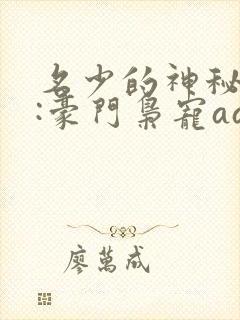 名少的神秘
:豪門梟寵aa
廖萬成